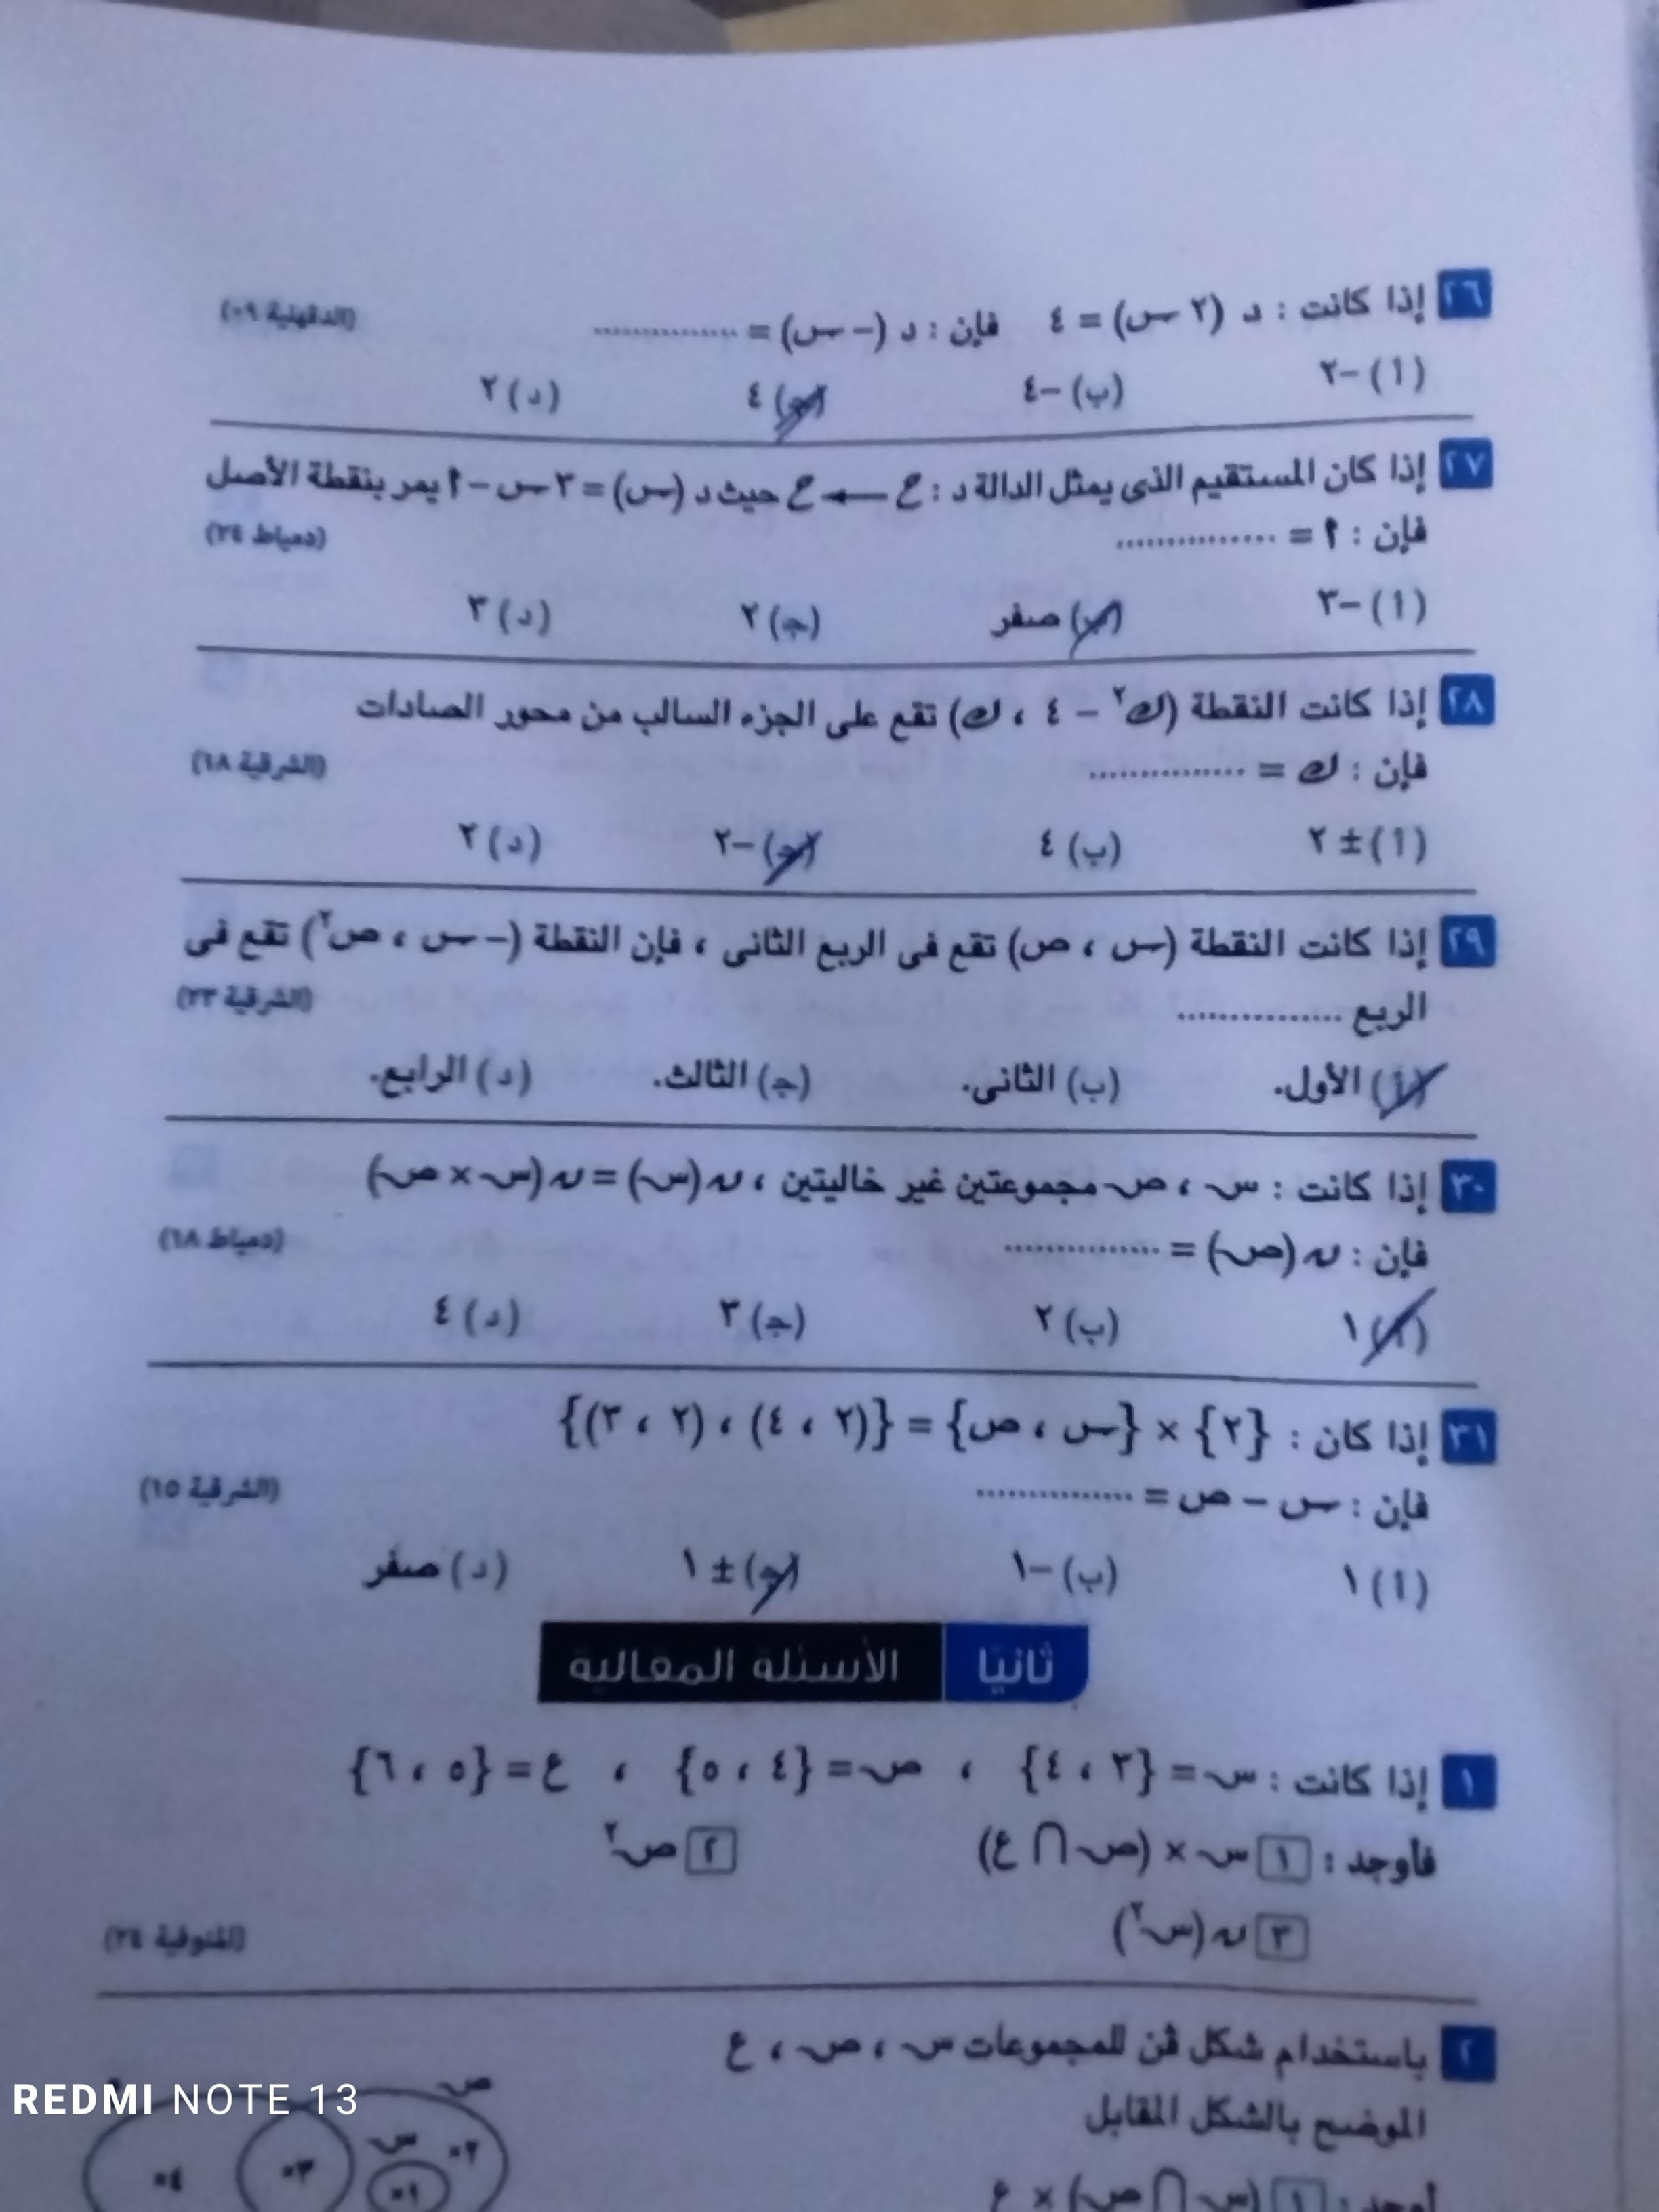 ٢٦ إذا كانت : د (٢ س) = ٤ فإن : د (– س) = ............... (الدقهلية ٠٩)
(أ) –٢ (ب) –٤ (جـ) ٤ (د) ٢
٢٧ إذا كان المستقيم الذى يمثل الدالة د : ح ← ح حيث د (س) = ٣ س – أ يمر بنقطة الأصل
فإن : أ = ............... (دمياط ٢٤)
(أ) –٣ (ب) صفر (جـ) ٢ (د) ٣
٢٨ إذا كانت النقطة (ك٢ – ٤ ، ك) تقع على الجزء السالب من محور الصادات
فإن : ك = ............... (الشرقية ١٨)
(أ) ± ٢ (ب) ٤ (جـ) –٢ (د) ٢
٢٩ إذا كانت النقطة (س ، ص) تقع فى الربع الثانى ، فإن النقطة (– س ، ص٢) تقع فى
الربع ............... (الشرقية ٢٣)
(أ) الأول. (ب) الثانى. (جـ) الثالث. (د) الرابع.
٣٠ إذا كانت : س ، ص مجموعتين غير خاليتين ، ن (س) = ن (س × ص)
فإن : ن (ص) = ............... (دمياط ١٨)
(أ) ١ (ب) ٢ (جـ) ٣ (د) ٤
٣١ إذا كان : {٢} × {س ، ص} = {(٢ ، ٤) ، (٢ ، ٣)}
فإن : س – ص = ............... (الشرقية ١٥)
(أ) ١ (ب) –١ (جـ) ± ١ (د) صفر
ثانيا الأسئلة المقالية
١ إذا كانت : س = {٣ ، ٤} ، ص = {٤ ، ٥} ، ع = {٥ ، ٦}
فأوجد : ١ س × (ص ∩ ع) ٢ ص٢
٣ ن (س٢) (المنوفية ٢٤)
٢ باستخدام شكل ڤن للمجموعات س ، ص ، ع
الموضح بالشكل المقابل
أوجد : ١ (س ∩ ص) × ع
ص
س
٤ ٣ ١ ٢
REDMI NOTE 13